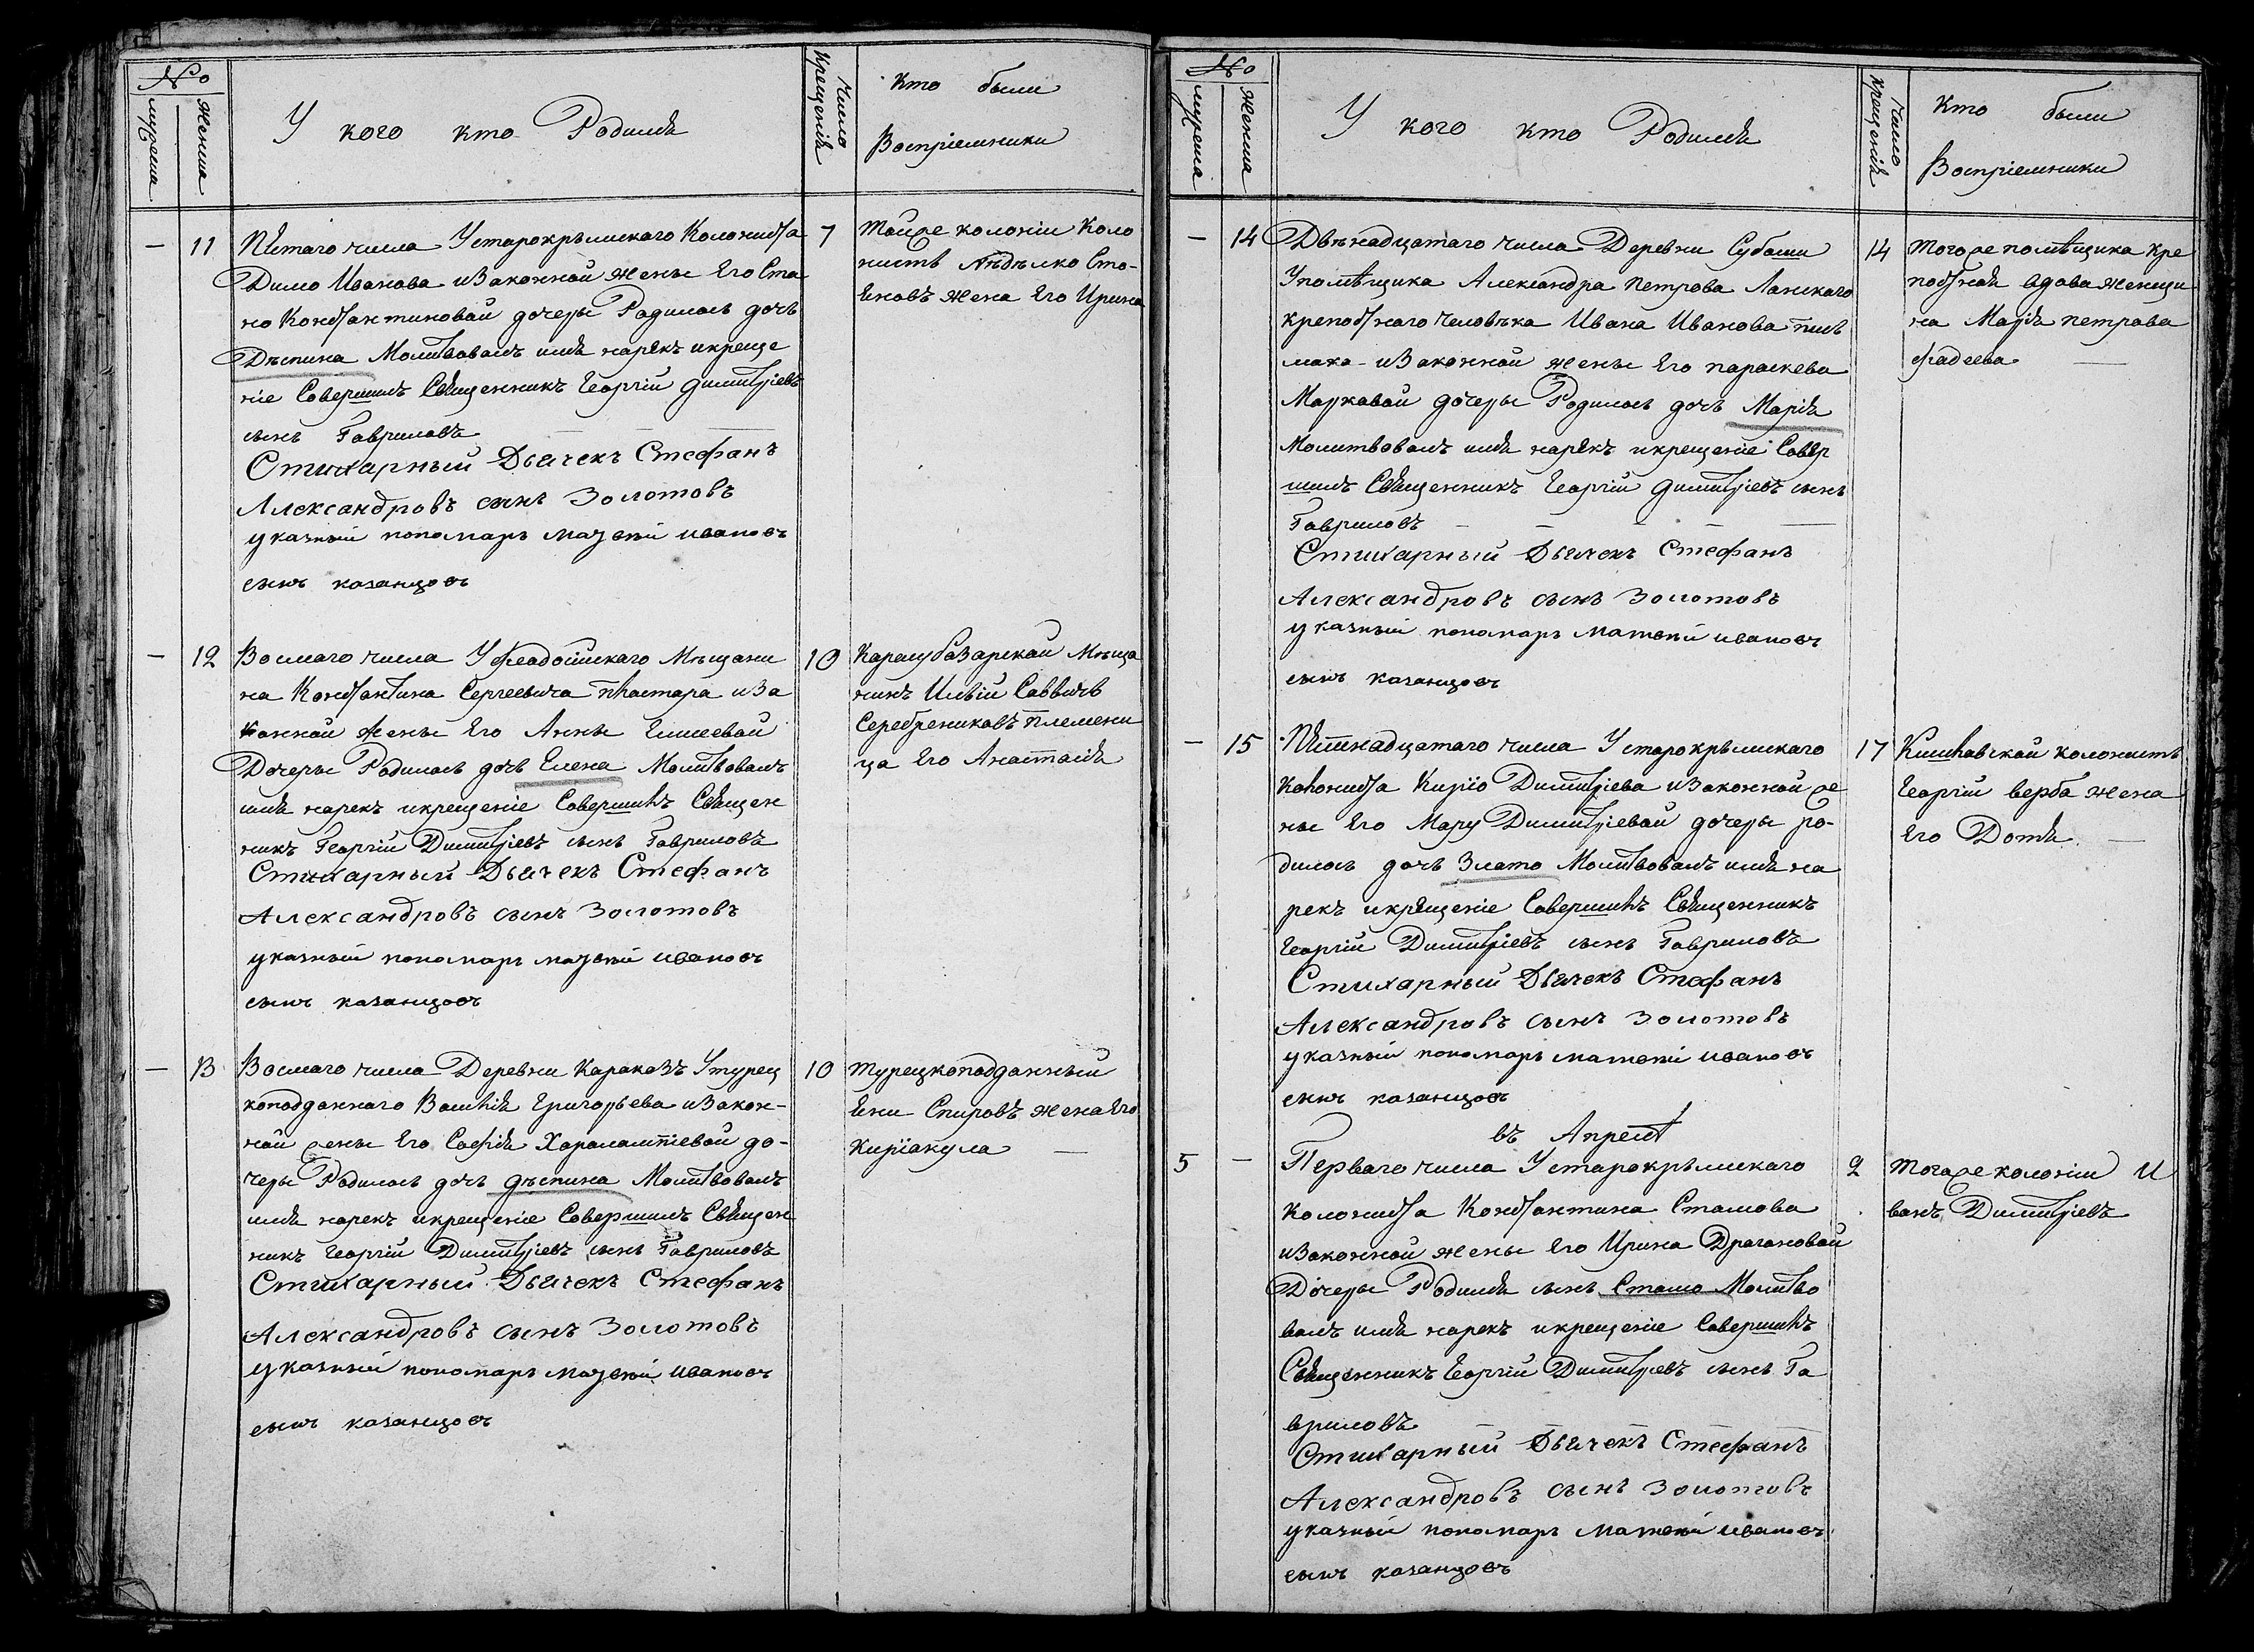 №
мужеска
женска
У кого кто Родился
Число Крещенія
Кто были
Воспріемники
— 11
Пятаго числа У старокрымскаго Колониста
Димо Иванова изаконной жены Его Ста
но Константиновай дочеры Родилась дочь
Дѣспина Молитвовалъ имя нарекъ икреще
ніе Совершилъ Священникъ Георгій димитріевъ
сынъ Гавриловъ
Стихарный Дьячекъ Стефанъ
Александровъ сынъ Золотовъ
указный пономарь матвей ивановъ
сынъ казанцовъ
7
Тойже колоніи Коло
нистъ Нѣдѣлко Сто-
Еновъ жена Его Ирина
— 12
Восмаго числа У феадосійскаго Мѣщани
на Константина Сергеевича Пластара иза
конной жены Его Анны Елисеевай
Дочеры Родилась дочь Елена Молитвовалъ
имя нарекъ икрещеніе Совершилъ Священ
никъ Георгій Димитріевъ сынъ Гавриловъ
Стихарный Дьячекъ Стефанъ
Александровъ сынъ Золотовъ
указный пономарь матвей ивановъ
сынъ казанцовъ
10
Карасубазарскай Мѣща
нинъ Илѣй Саввичъ
Серебрениковъ племени
ца Его Анастасія
— 13
Восмаго числа Деревни Каракозъ У турец
коподданнаго Василія Григорьева изакон-
ной жены Его Софія Харалампіевой до-
черы Родилась дочь дѣспина Молитвовалъ
имя нарекъ икрещеніе Совершилъ Священ
никъ Георгій Димитріевъ сынъ Гавриловъ
Стихарный Дьячекъ Стефанъ
Александровъ сынъ Золотовъ
указный пономарь матвей ивановъ
сынъ казанцовъ
10
турецкоподданный
Ени Спировъ жена Его
Киріакула —
№
мужеска
женска
У кого кто Родился
Число крещенія
Кто были
Воспріемники
— 14
Двѣнадцатаго числа Деревни Субаши
У помѣщика Александра Петрова Ланскаго
крепостнаго человѣка Ивана Иванова
изаконной жены Его параскева
Маркавой дочеры Родилась дочь Марія
Молитвовалъ имя нарекъ икрещеніе Совер
шилъ Священникъ Георгій димитріевъ сынъ
Гавриловъ —
Стихарный Дьячекъ Стефанъ
Александровъ сынъ Золотовъ
указный пономарь матвей ивановъ
сынъ казанцовъ
14
тогоже помѣщика кре
постная вдова женщи
на Марія петрова
фадеева —
— 15
Пятнадцатаго числа У старокрымскаго
Колониста Киріо Димитріева изаконной же
ны Его Мару Димитріевай дочеры ро-
дилась дочь Злато Молитвовалъ имя на
рекъ икрещеніе Совершилъ Священникъ
Георгій Димитріевъ сынъ Гавриловъ
Стихарный Дьячекъ Стефанъ
Александровъ сынъ Золотовъ
указный пономарь матвей ивановъ
сынъ казанцовъ
17
Кишлавской колонистъ
Георгій верба жена
Его Дотя. —
въ Апрелѣ
5 —
Перваго числа У старокрымскаго
колониста Константина Стамова
изаконной жены Его Ирина Драгановай
Дочеры Родился сынъ Стамо Молитво
валъ имя нарекъ икрещеніе Совершилъ
Священникъ Георгій Димитріевъ сынъ Га
вриловъ
Стихарный Дьячекъ Стефанъ
Александровъ сынъ Золотовъ
указный пономарь матвей ивановъ
сынъ казанцовъ
2
тогоже колоніи И
ванъ Димитріевъ